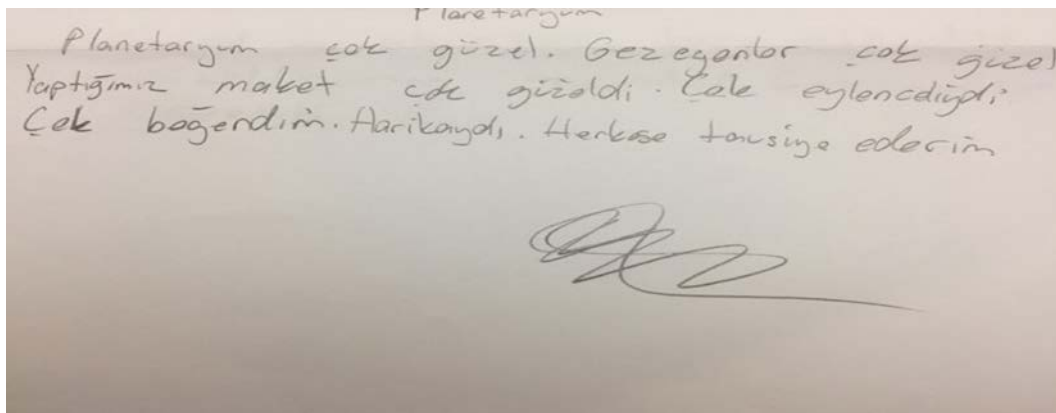 Planetaryum
Planetaryum çok güzel. Gezegenler çok güzel
Yaptığımız maket çok güzeldi. Çok eylencdiydi
Çok beğendim. Harikaydı. Herkese tavsiye ederim